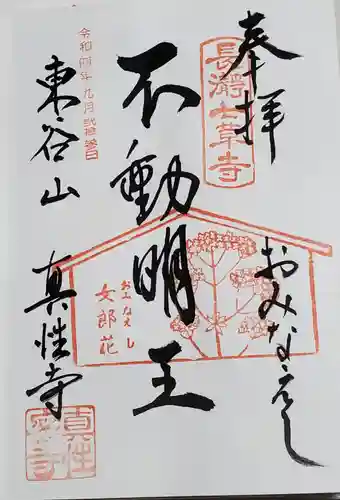 奉拝
長瀞七草寺
おみなえし
不動明王
おみなえし
女郎花
令和四年九月弐拾参日
東谷山
真性寺